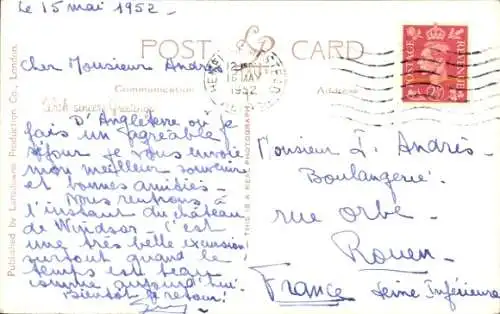 Le 15 mai 1952 -
POST CARD
Cher Monsieur André
Communication
Address
With sincere Greetings
D'Angleterre où je
fais un agréable
séjour je vous envoie
mon meilleur souvenir
et bonnes amitiés -
Nous rentrons à
l'instant du château
de Windsor - C'est
une très belle excursion
surtout quand le
temps est beau
comme aujourd'hui.
Bientôt le retour!
Monsieur J. Andrés
Boulangerie.
rue Orbe -
Rouen -
France Seine Inférieure
POSTAGE
REVENUE
15 MAY
1952
THIS IS A REAL PHOTOGRAPH
Published by Lansdowne Production Co., London.